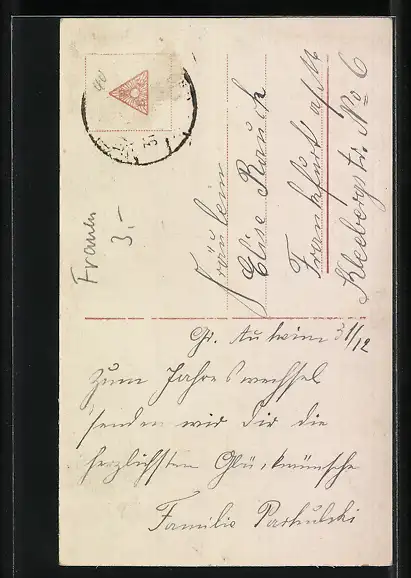 Frauen
3.-
Fräulein
Elise Rauch
Frankfurt a/M
Kleebergstr. No 6
Gr. Auheim 31/12
Zum Jahreswechsel
senden wir Dir die
herzlichsten Glückwünsche
Familie